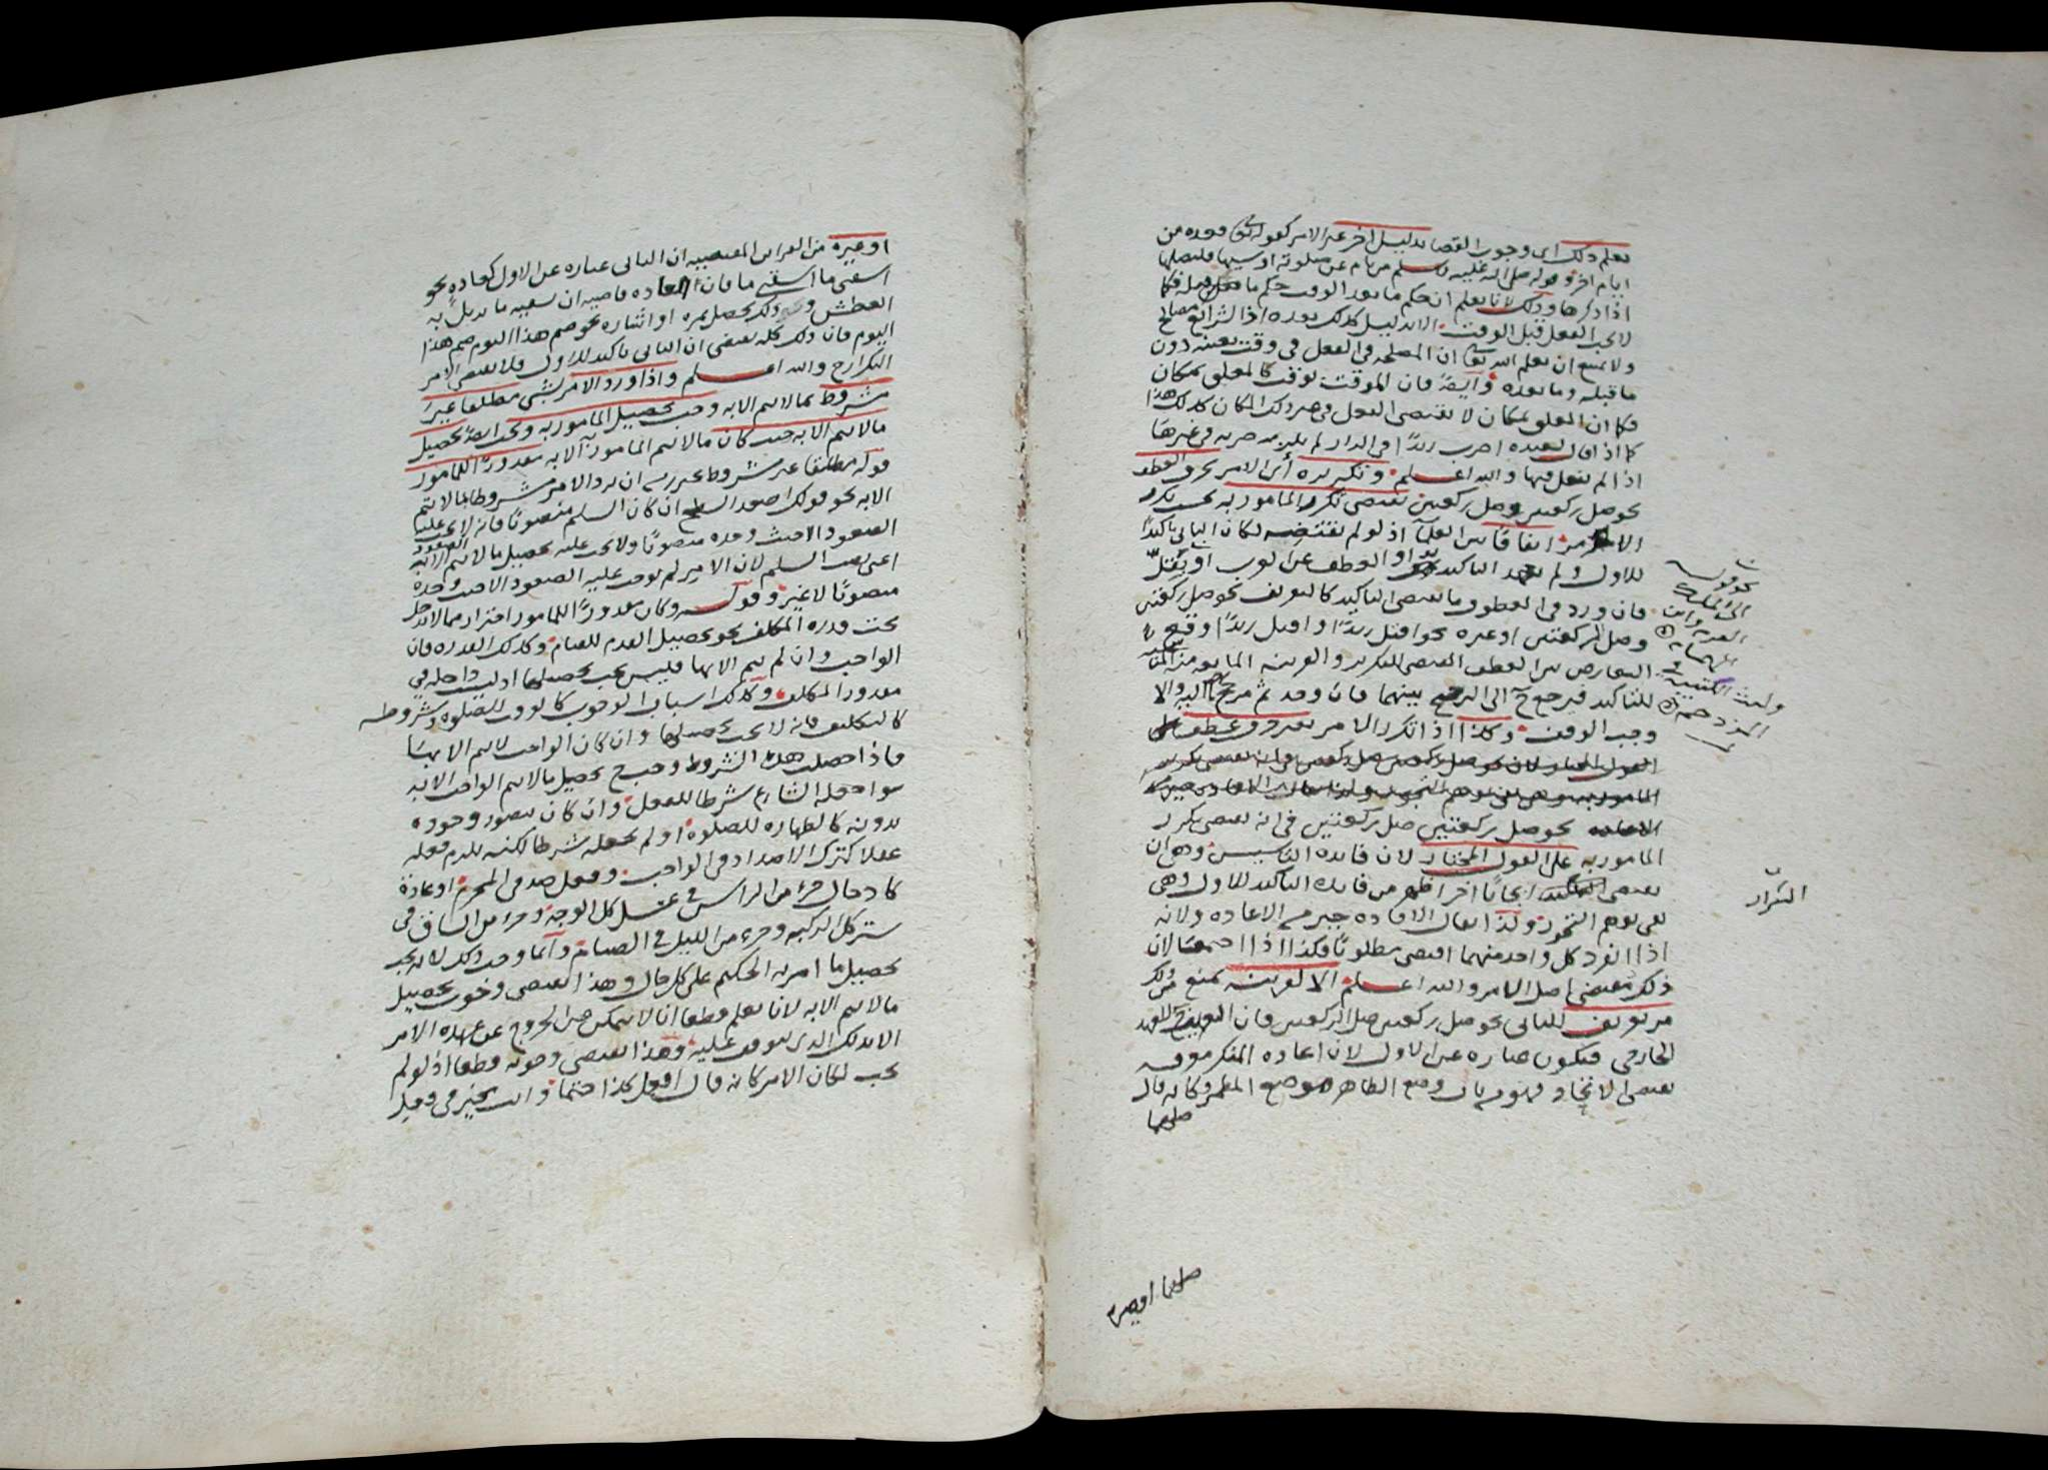 يعلم ذلك اي وجوب القضا بدليل اخر غير الامر كقوله تعالى فعدة من
ايام اخر وقوله صلى الله عليه وسلم من نام عن صلوته او نسيها فليصلها
اذا ذكرها وذلك لانا نعلم ان حكم ما بعد الوقت حكم ما قبله فكما
لا يجب الفعل قبل الوقت الا بدليل كذلك بعده اذ الشرائع مصالح
ولا يمتنع ان يعلم الله تعالى ان المصلحة في الفعل في وقت بعينه دون
ما قبله وما بعده وايضا فان الموقت بوقت كالمعلق بمكان
فكما ان المعلق بمكان لا يقتضي الفعل في غير ذلك المكان كذلك هذا
كما اذا قال لعبده اضرب زيدًا في الدار لم يلزمه ضربه في غيرها
اذا لم يفعل فيها والله اعلم وتكريره أي الامر بحرف العطف
نحو صل ركعتين وصل ركعتين يقتضي تكرر المامور به بحسب تكرر
الامر اتفاقًا بين العلما اذ لو لم يقتضه لكان الثاني تاكيدًا
للاول ولم يعهد التاكيد بواو العطف عن العرب او يقلّ
فان ورد في العطف ما يقتضي التاكيد كالتعريف نحو صل ركعتين
وصل الركعتين او غيره نحو اقتل زيدًا واقتل زيدًا وقع
التعارض بين العطف المقتضي للتكرير والقرينة المانعة منه المقتضية
للتاكيد فيرجع ح الى الترجيح بينهما فان وجد ثم مرجح والا
وجب الوقف وكذا اذا تكرر الامر بغير حرف عطف
نحو صل ركعتين صل ركعتين في انه يقتضي تكرر
المامور به على القول المختار لان فائدة التاسيس وهي ان
يقتضي ايجابًا اخر اظهر من فائدة التاكيد للاول وهي
نفي توهم التجوز ولذا يقال الافادة خير من الاعادة ولانه
اذا انفرد كل واحد منهما اقتضى مطلوبًا فكذا اذا اجتمعا لان
ذلك مقتضى اصل الامر والله اعلم الا لقرينة تمنع من ذلك
من تعريف للثاني نحو صل ركعتين صل الركعتين فان التعريف للعهد
الخارجي فيكون عبارة عن الاول لان اعادة المنكر معرفة
يقتضي الاتحاد فهو من باب وضع الظاهر موضع المضمر وكانه قال
صلهما
نحو قوله
الى الملك
القرم وابن
الهمام
وليث الكتيبة في
المزدحم
التكرار
صلهما او غيره
او غيره من القرائن المقتضية ان الثاني عبارة عن الاول كعادة نحو
اسقني ما اسقني ما فان العادة قاضية ان سقيه ما يزيل به
العطش ونحو ذلك يحصل بمرة او اشارة نحو صم هذا اليوم صم هذا
اليوم فان ذلك كله يقتضي ان الثاني تاكيد للاول فلا يقتضي الامر
التكرار ح والله اعلم واذا ورد الامر بشي مطلقا غير
مشروط بما لا يتم الا به وجب تحصيل المامور به وتحت ايضا تحصيل
ما لا يتم الا به حيث كان ما لا يتم المامور الا به مقدورًا للمامور
قوله مطلقا غير مشروط يحترز به ان يرد الامر مشروطا بما لا يتم
الا به نحو قولك اصعد السطح ان كان السلم منصوبًا فانه لا يجب عليه
الصعود الا حيث وجده منصوبًا ولا يجب عليه تحصيل ما لا يتم الصعود الا به
اعني نصب السلم لان الامير لم يوجب عليه الصعود الا حيث وجده
منصوبًا لا غير وقوله وكان مقدورًا للمامور احتراز مما لا يدخل
تحت قدرة المكلف نحو تحصيل القدم للقيام وكذلك القدرة فان
الواجب وان لم يتم الا بها فليس يجب تحصيلها اذ ليست داخلة في
مقدور المكلف وكذلك اسباب الوجوب كالوقت للصلوة وشروطه
كالتكليف فانه لا يجب تحصيلها وان كان الواجب لا يتم الا بها
فاذا حصلت هذه الشروط وجب ح تحصيل ما لا يتم الواجب الا به
سوا جعله الشارع شرطا للفعل وان كان يتصور وجوده
بدونه كالطهارة للصلوة او لم يجعله شرطا لكنه يلزم فعله
عقلا كترك الاضداد في الواجب وفعل ضد في المحرم او عادة
كادخال جزء من الراس في غسل كل الوجه وجزء من الساق في
ستر كل الركبة وجزء من الليل في الصيام وانما وجب ذلك لانه يجب
تحصيل ما امر به الحكيم على كل حال وهذا يقتضي وجوب تحصيل
ما لا يتم الا به لانا نعلم قطعا انا لا نتمكن من الخروج عن عهدة الامر
الا بذلك الذي يتوقف عليه وهذا يقتضي وجوبه قطعا اذ لو لم
يجب لكان الامر كانه قال افعل كذا حتما وانت مخير في فعل